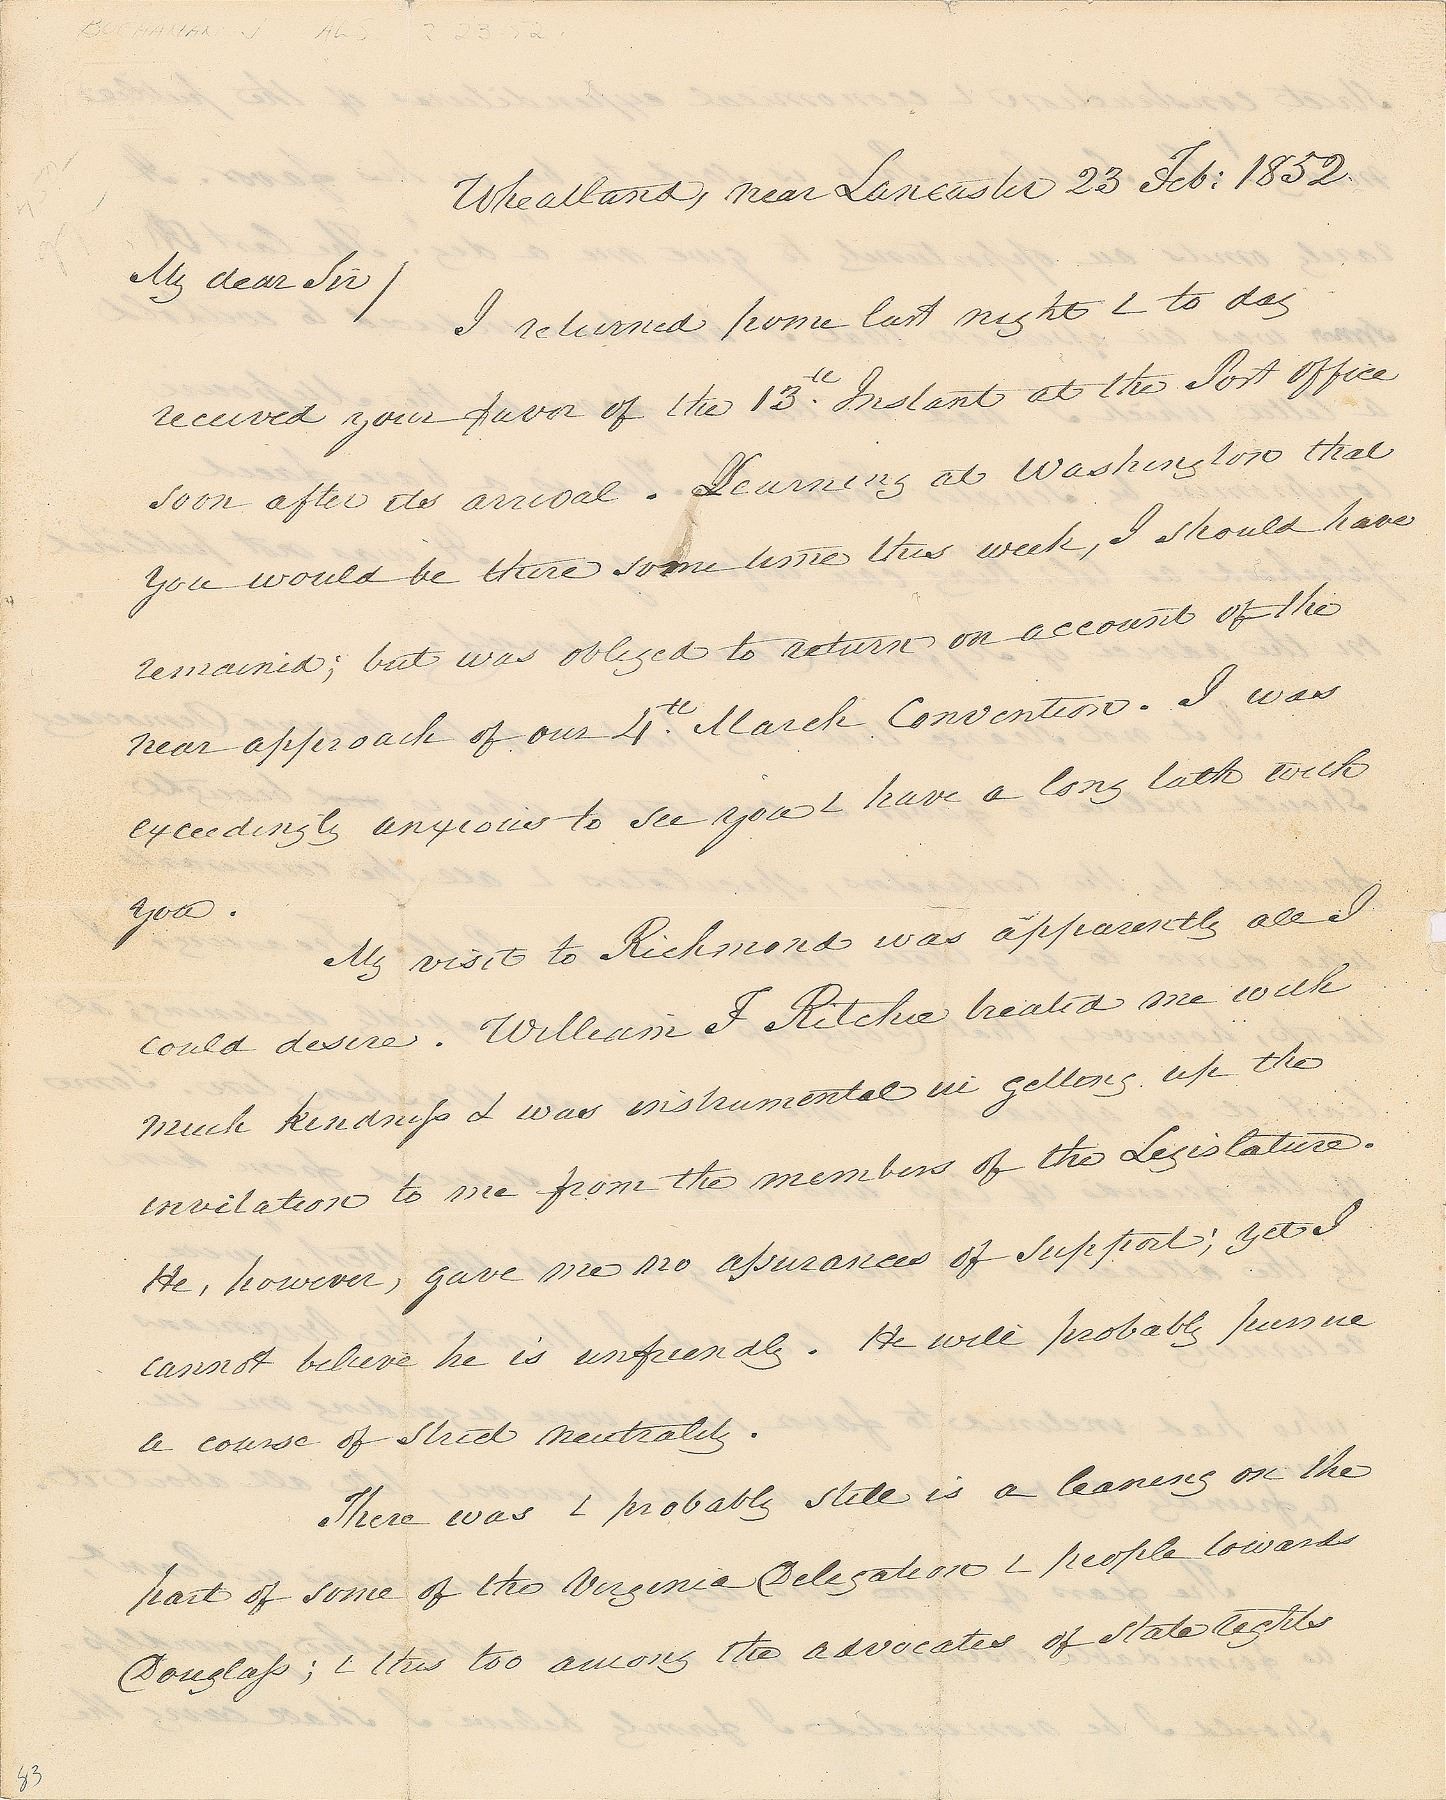 BUCHANAN J ALS 2 23 52
Wheatland, near Lancaster 23 Feb: 1852.
My dear Sir/
I returned home last night & to day
received your favor of the 13th. Instant at the Post Office
soon after its arrival. Learning at Washington that
you would be there some time this week, I should have
remained; but was obliged to return on account of the
near approach of our 4th. March Convention. I was
exceedingly anxious to see you & have a long talk with
you.
My visit to Richmond was apparently all I
could desire. William F Ritchie treated me with
much kindness & was instrumental in getting up the
invitation to me from the members of the Legislature.
He, however, gave me no assurances of support; yet I
cannot believe he is unfriendly. He will probably pursue
a course of strict neutrality.
There was & probably still is a leaning on the
part of some of the Virginia Delegation & people towards
Douglass; & this too among the advocates of State rights
83